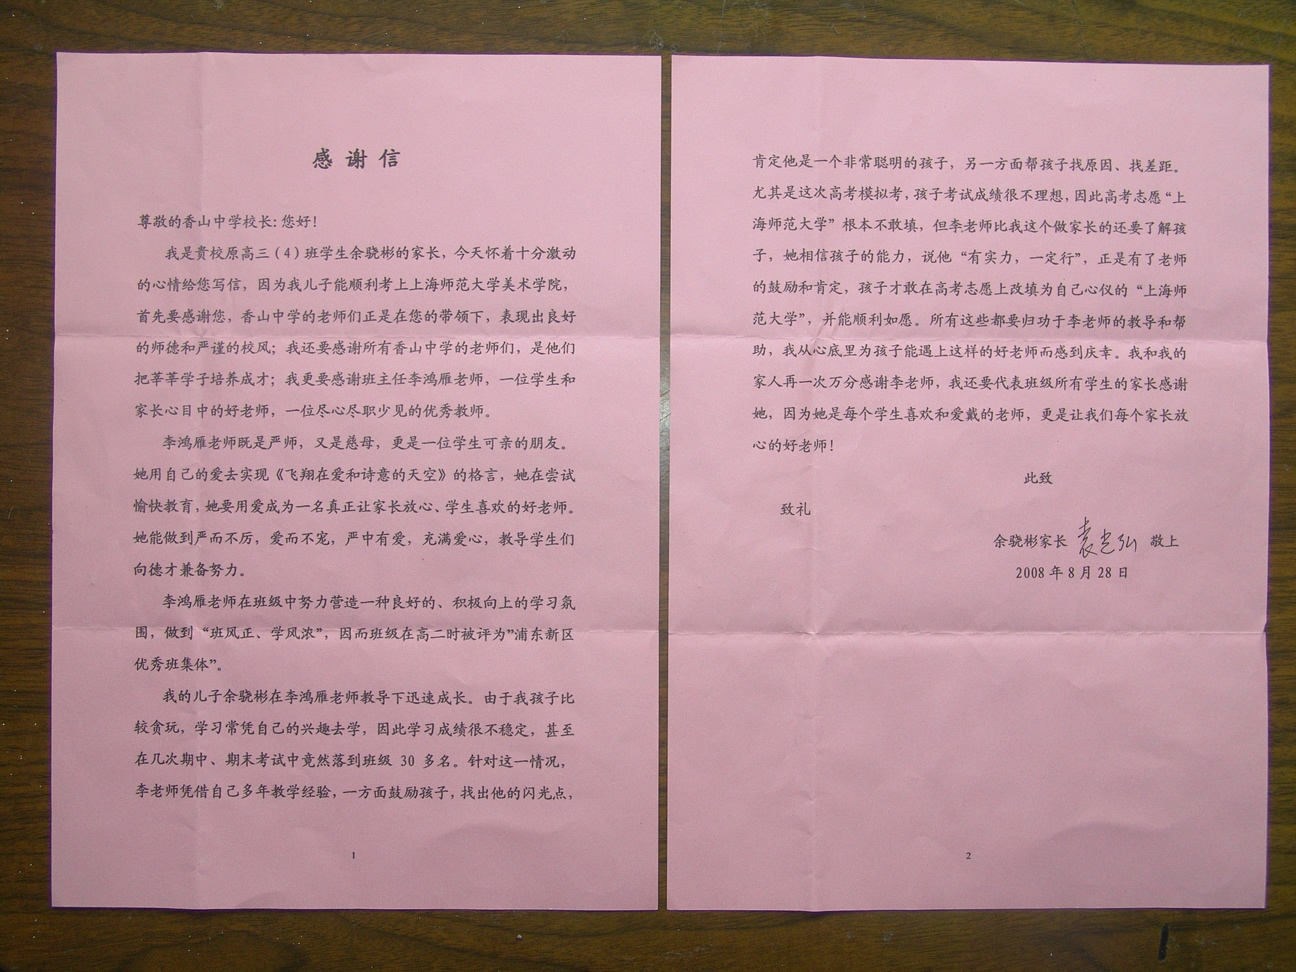 感谢信
尊敬的香山中学校长：您好！
我是贵校原高三（4）班学生余骁彬的家长，今天怀着十分激动
的心情给您写信，因为我儿子能顺利考上上海师范大学美术学院，
首先要感谢您，香山中学的老师们正是在您的带领下，表现出良好
的师德和严谨的校风；我还要感谢所有香山中学的老师们，是他们
把莘莘学子培养成才；我更要感谢班主任李鸿雁老师，一位学生和
家长心目中的好老师，一位尽心尽职少见的优秀教师。
李鸿雁老师既是严师，又是慈母，更是一位学生可亲的朋友。
她用自己的爱去实现《飞翔在爱和诗意的天空》的格言，她在尝试
愉快教育，她要用爱成为一名真正让家长放心、学生喜欢的好老师。
她能做到严而不厉，爱而不宠，严中有爱，充满爱心，教导学生们
向德才兼备努力。
李鸿雁老师在班级中努力营造一种良好的、积极向上的学习氛
围，做到“班风正、学风浓”，因而班级在高二时被评为”浦东新区
优秀班集体”。
我的儿子余骁彬在李鸿雁老师教导下迅速成长。由于我孩子比
较贪玩，学习常凭自己的兴趣去学，因此学习成绩很不稳定，甚至
在几次期中、期末考试中竟然落到班级 30 多名。针对这一情况，
李老师凭借自己多年教学经验，一方面鼓励孩子，找出他的闪光点，
1
肯定他是一个非常聪明的孩子，另一方面帮孩子找原因、找差距。
尤其是这次高考模拟考，孩子考试成绩很不理想，因此高考志愿“上
海师范大学”根本不敢填，但李老师比我这个做家长的还要了解孩
子，她相信孩子的能力，说他“有实力，一定行”，正是有了老师
的鼓励和肯定，孩子才敢在高考志愿上改填为自己心仪的“上海师
范大学”，并能顺利如愿。所有这些都要归功于李老师的教导和帮
助，我从心底里为孩子能遇上这样的好老师而感到庆幸。我和我的
家人再一次万分感谢李老师，我还要代表班级所有学生的家长感谢
她，因为她是每个学生喜欢和爱戴的老师，更是让我们每个家长放
心的好老师！
此致
致礼
余骁彬家长 敬上
2008 年 8 月 28 日
2